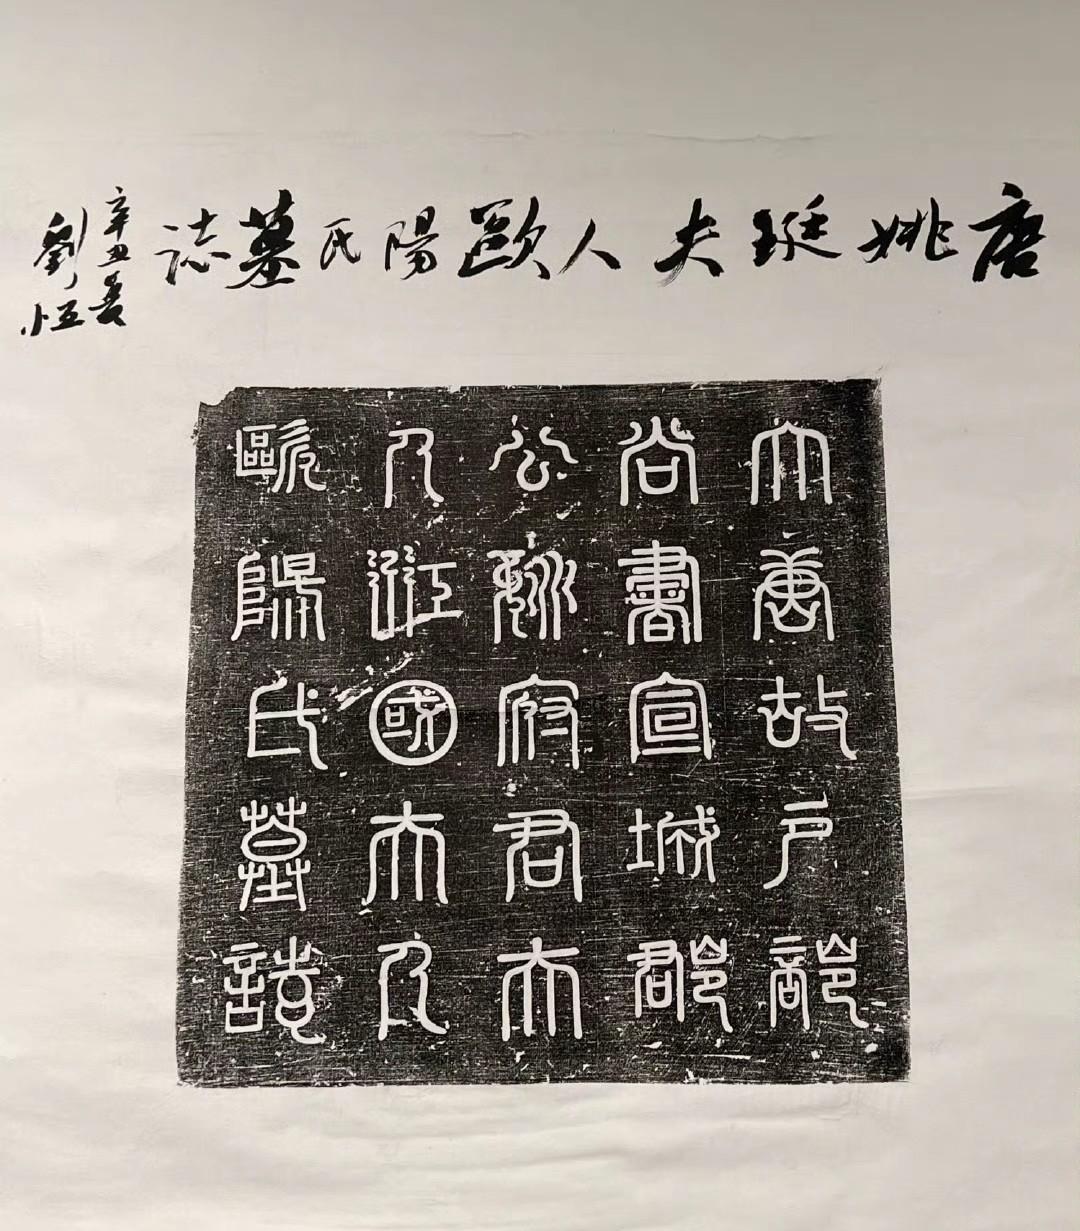 唐姚珽夫人歐陽氏墓誌
辛丑
劉恆
大唐故戶部
尚書宣城郡
公姚府君夫
人國夫人
歐陽氏墓誌